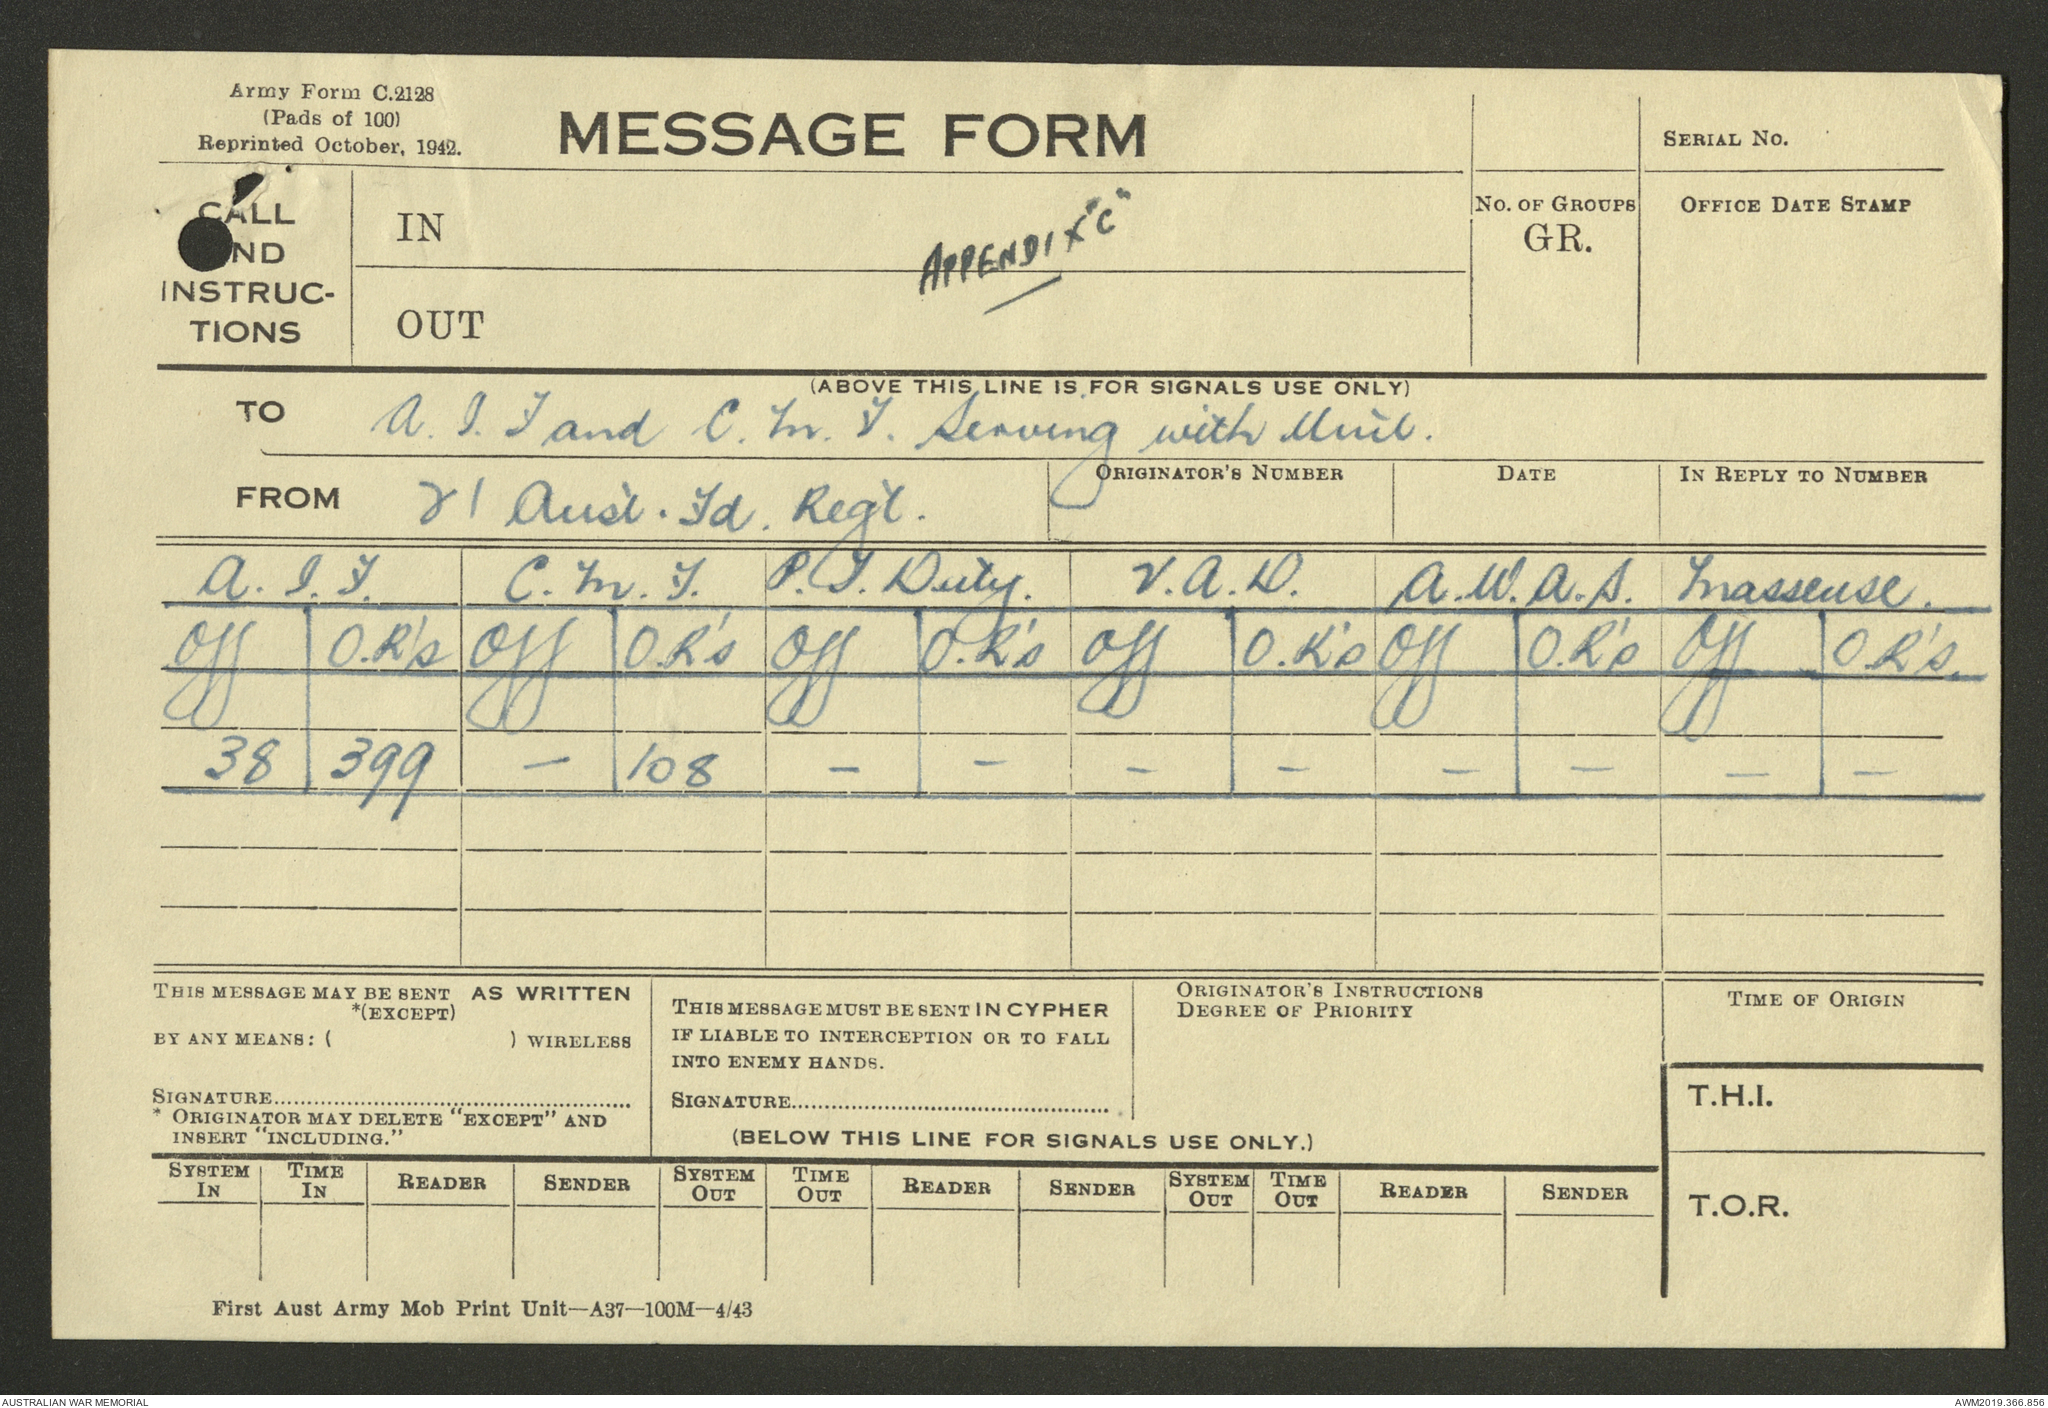 Army Form C.2128
(Pads of 100)
Reprinted October, 1942.
MESSAGE FORM
SERIAL NO.
CALL
AND
INSTRUC-
TIONS
IN
OUT
APPENDIX "C"
NO. OF GROUPS
GR.
OFFICE DATE STAMP
(ABOVE THIS LINE IS FOR SIGNALS USE ONLY)
TO A. I. F and C. M. F. Serving with Unit.
FROM 21 Aust. Fd. Regt.
ORIGINATOR'S NUMBER DATE IN REPLY TO NUMBER
A. I. F. C. M. F. P. T. Duty. V. A. D. A. W. A. S. Masseuse.
Off O.R's Off O.R's Off O.R's Off O.R's Off O.R's Off O.R's.
38 399 – 108 – – – – – – – –
THIS MESSAGE MAY BE SENT AS WRITTEN
*(EXCEPT)
BY ANY MEANS: ( ) WIRELESS
SIGNATURE
* ORIGINATOR MAY DELETE "EXCEPT" AND
INSERT "INCLUDING."
THIS MESSAGE MUST BE SENT IN CYPHER
IF LIABLE TO INTERCEPTION OR TO FALL
INTO ENEMY HANDS.
SIGNATURE
ORIGINATOR'S INSTRUCTIONS
DEGREE OF PRIORITY
TIME OF ORIGIN
(BELOW THIS LINE FOR SIGNALS USE ONLY.)
T.H.I.
T.O.R.
SYSTEM IN TIME IN READER SENDER SYSTEM OUT TIME OUT READER SENDER SYSTEM OUT TIME OUT READER SENDER
First Aust Army Mob Print Unit—A37—100M—4/43
AUSTRALIAN WAR MEMORIAL
AWM2019.366.856